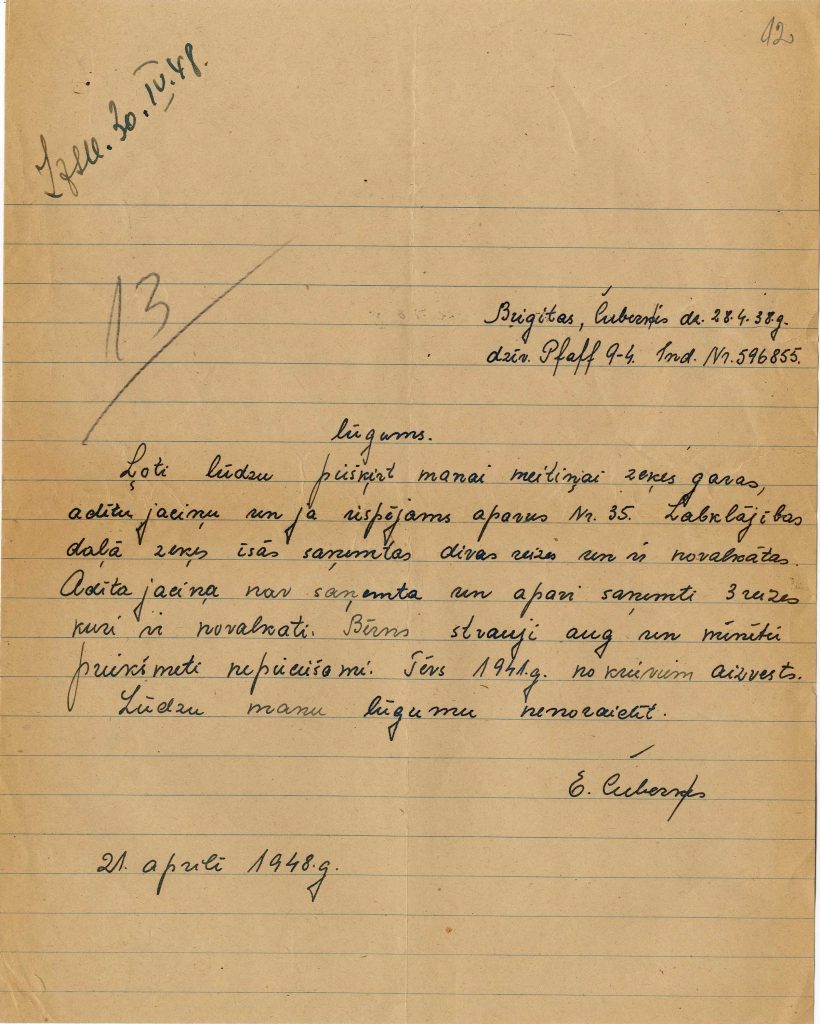 12
Izsn. 30.IV.48.
13
Brigitas, Čubernis dz. 28.4.38.g.
dzīv. Pfaff 9-4. Ind. Nr. 596855.
lūgums.
Ļoti lūdzu piešķirt manai meitiņai zeķes garas,
adītu jaciņu un ja iespējams apavus Nr. 35. Labklājības
daļā zeķes īsās saņemtas divas reizes un ir novalkātas.
Adīta jaciņa nav saņemta un apavi saņemti 3 reizes
kuri ir novalkāti. Bērns strauji aug un minētie
priekšmeti nepieciešami. Tēvs 1941.g. no krieviem aizvests.
Lūdzu manu lūgumu nenoraidīt.
E. Čubernis
21. aprīlī 1948.g.